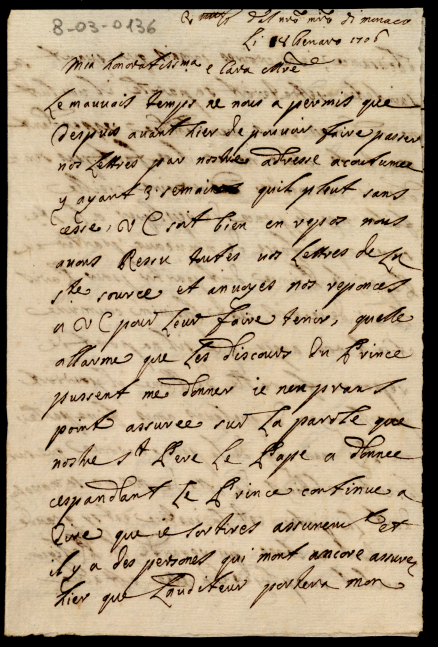 8-03-0136
del nro mro di monaco
Li 18 Genaro 1706
Mia honoratissima e Cara Mre
Le mauvois temps ne nous a permis que
despuis avant hier de pouvoir faire passer
nos Lettres par nostre adresse acoutumee
y ayant 3 semaines quil pleut sans
cesse, VC soit bien en repos nous
avons Ressu toutes vos Lettres de La
ste source et anvoyes nos reponces
a VC pour Leur faire tenir, quelle
allarme que Les discours du Prince
pussent me donner ie nen prans
point assuree sur La parolle que
nostre st Pere Le Pape a donnee
cespandant Le Prince continue a
dire que ie sortires assurement et
il y a des persones qui mont ancore assure
hier que Lauditeur portera mon